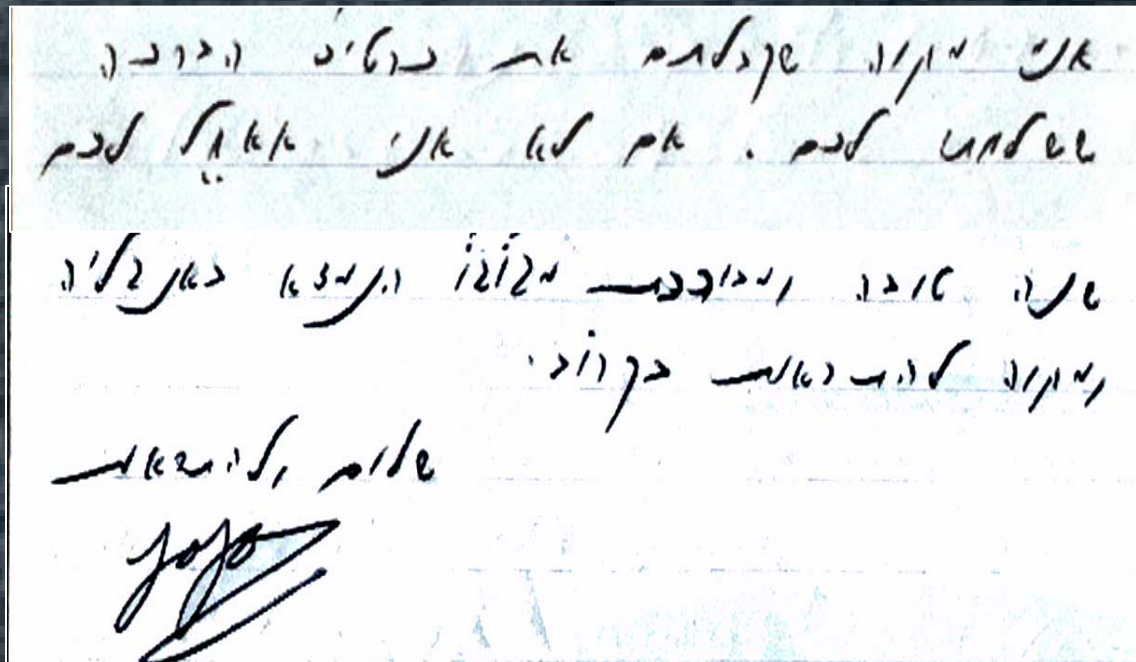 אני מקוה שקבלתם את כרטיס הברכה
ששלחתי לכם. אם לא אני אאחל לכם
שנה טובה ומבורכת הנמצא באנגליה
ומקוה להתראות בקרוב.
שלום ולהתראות
JoJo